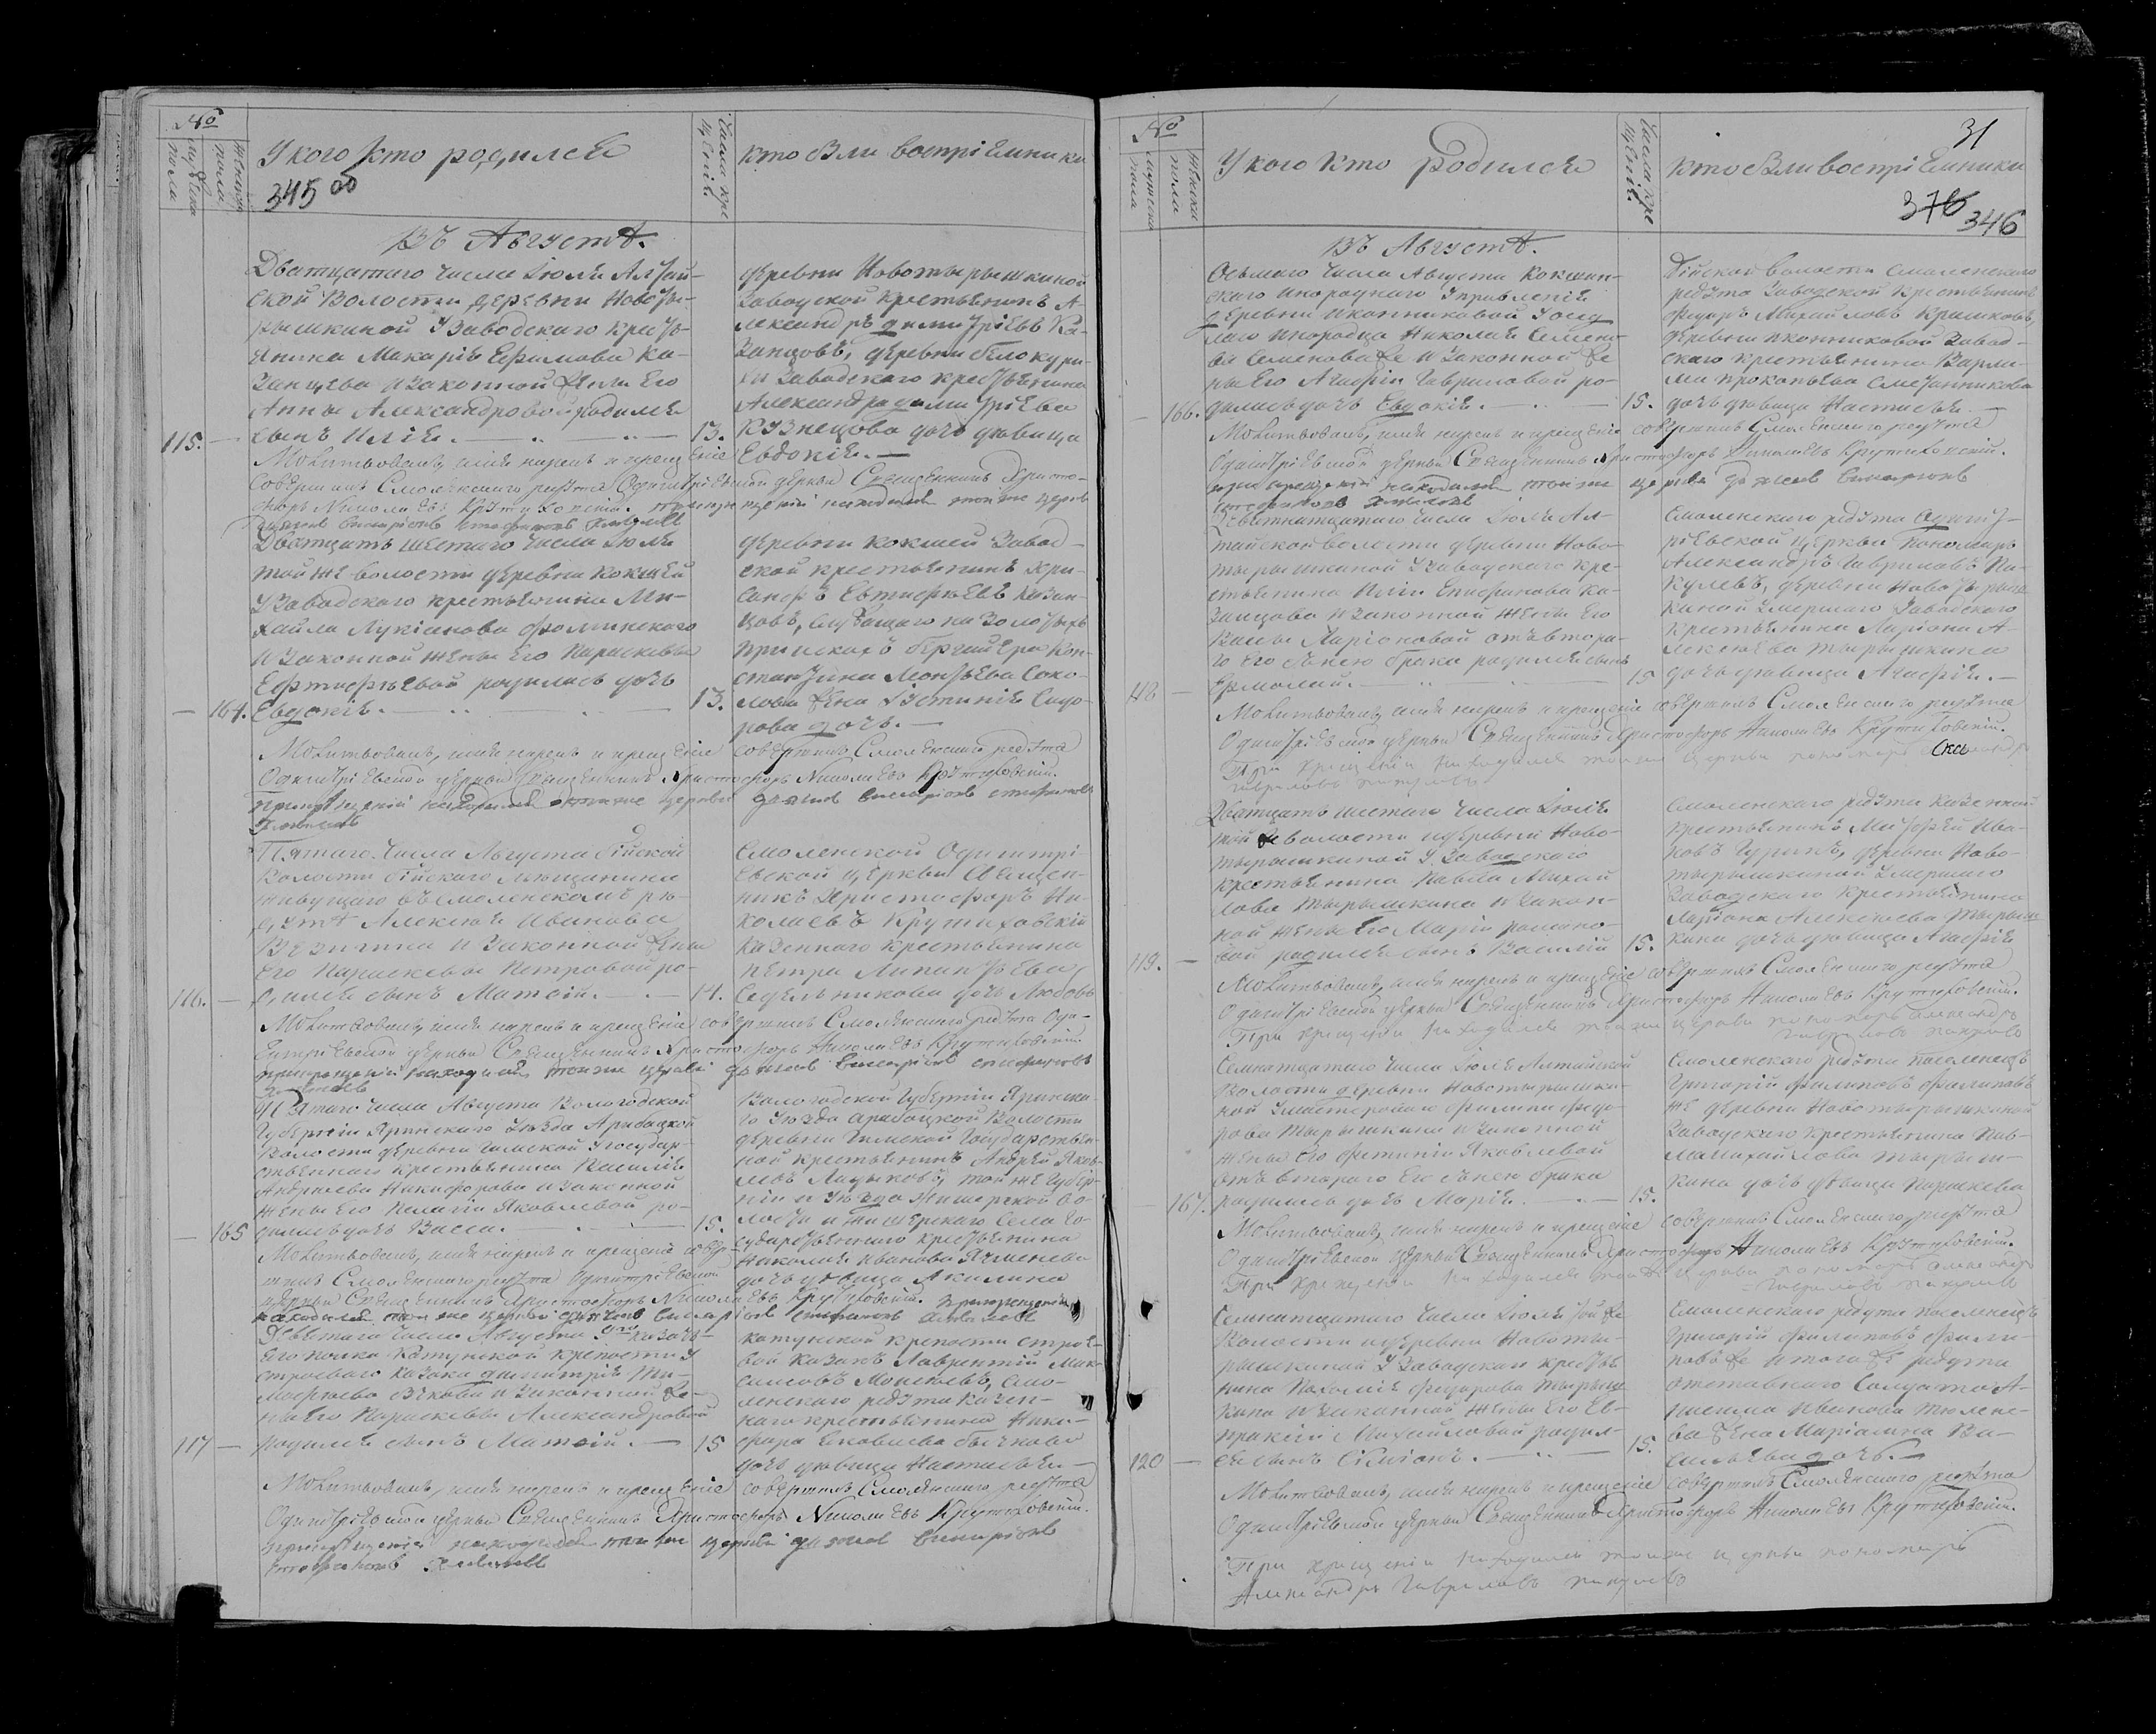 №
мужеска пола
женска пола
У кого кто родился
345 об
Числа кре щенiя
кто были воспрiемники
Въ Августѣ.
Дватцатаго числа Iюля Алтай-
ской Волости деревни Новоты-
рышкиной у Заводскаго кресть-
янина Макарiя Ефимова Ка-
занцева и Законной жены Его
Анны Александровой родился
115. — сынъ Илiя. — 13.
деревни Новотырышкиной
Заводской крестьянинъ А-
лександръ Димитрiевъ Ка-
занцовъ, деревни Белокури-
хи Заводскаго крестьянина
Александра Димитрiева
Кузнецова дочь девица
Евдокiя. —
Молитвовалъ, имя нарекъ и крещенiе
совершилъ Смоленскаго редута Одигитрiевской церкви Священникъ Христо-
форъ Николаевъ Крутиховскiй. при крещенiи находился тойже церкви
дьячекъ Виссарiонъ Стефановъ Хмылевъ
Дватцать шестаго числа Iюля
той же волости деревни Кокшей
у Заводскаго крестьянина Ми-
хаила Лукiянова Фоминскаго
и Законной жены Его Параскевы
Евтифьевой родилась дочь
— 164. Евдокiя. — 13.
деревни Кокшей Завод-
ской крестьянинъ Хри-
санфъ Евтифьевъ Казан-
цовъ, служащаго на Золотыхъ
прiискахъ Бергшейера Кон-
стантина Леонтьева Соко-
лова жена Iустинiя Сидо-
рова дочь. —
Молитвовалъ, имя нарекъ и крещенiе совершилъ Смоленскаго редута
Одигитрiевской церкви Священникъ Христофоръ Николаевъ Крутиховскiй.
при крещенiи находился тойже церкви дьячекъ Виссарiонъ Стефановъ
Хмылевъ
Пятаго числа Августа Бiйской
Волости Бiйскаго мещанина
живущаго въ Смоленскомъ ре-
дутѣ Алексея Иванова
Везигина и Законной жены
Его Параскевы Петровой ро-
116. — дился сынъ Матѳiй. — 14.
Смоленской Одигитрi-
евской церкви Священ-
никъ Христофоръ Ни-
колаевъ Крутиховскiй
казеннаго крестьянина
Петра Липантьева
Седельникова дочь Любовь
Молитвовалъ, имя нарекъ и крещенiе совершилъ Смоленскаго редута Оди-
гитрiевской церкви Священникъ Христофоръ Николаевъ Крутиховскiй
при крещенiи находился тойже церкви дьячекъ Виссарiонъ Стефановъ
Хмылевъ
Пятаго числа Августа Вологодской
Губернiи Яринскаго Уезда
Волости деревни у Государ-
ственнаго крестьянина Василiя
Андреева Никифорова и Законной
жены Его Пелагiи Яковлевой ро-
— 165 дилась дочь Васса. — 15.
Вологодской Губернiи Яринска-
го Уезда Волости
деревни Государствен-
ной крестьянинъ Андрей Яков-
левъ той же Губер-
нiи и Уезда во-
лости и Села Го-
сударственнаго крестьянина
Николая Иванова Ячменева
дочь девица Акилина
Молитвовалъ, имя нарекъ и крещенiе совер-
шилъ Смоленскаго редута Одигитрiевской
церкви Священникъ Христофоръ Николаевъ Крутиховскiй. при крещенiи
находился тойже церкви дьячекъ Виссарiонъ Стефановъ Хмылевъ
Девятаго числа Августа 9го казачь-
его полка Катунской крепости у
строеваго казака Димитрiя Ти-
мофеева Зыкова и Законной же-
ны Его Параскевы Александровой
117 — родился сынъ Матѳiй. — 15
Катунской крепости строе-
вой казакъ Лаврентiй Мак-
симовъ Смо-
ленскаго редута казен-
наго крестьянина Ники-
фора Яковлева Бычкова
дочь девица Настасья. —
Молитвовалъ, имя нарекъ и крещенiе совершилъ Смоленскаго редута
Одигитрiевской церкви Священникъ Христофоръ Николаевъ Крутиховскiй.
при крещенiи находился тойже церкви дьячекъ Виссарiонъ
Стефановъ Хмылевъ
31
№
мужеска пола
женска пола
У кого кто родился
Числа кре щенiя
кто были воспрiемники
376 346
Въ Августѣ.
Осьмаго числа Августа Кокшин-
скаго инороднаго Управленiя
деревни Иконниковой у осед
лаго инородца Николая Семено-
ва Семенова же и Законной же
ны Его Агафiи Гавриловой ро-
— 166. дилась дочь Евдокiя. — 15.
Бiйской волости Смоленскаго
редута Заводской крестьянинъ
Федоръ Михайловъ Крашковъ,
деревни Иконниковой Завод-
скаго крестьянина Варла-
ма Прокопьева Сметанникова
дочь девица Настасья —
Молитвовалъ, имя нарекъ и крещенiе совершилъ Смоленскаго редута
Одигитрiевской церкви Священникъ Христофоръ Николаевъ Крутиховскiй.
при крещенiи находился тойже церкви дьячекъ Виссарiонъ
Стефановъ Хмылевъ
Девятнатцатаго числа Iюля Ал-
тайской волости деревни Ново-
тырышкиной у Заводскаго кре-
стьянина Илiи Епифанова Ка-
занцова и Законной жены Его
Вассы Ларiоновой отъ втора-
го Его съ нею брака родился сынъ
118 — Ермолай. — 15
Смоленскаго редута Одигит-
рiевской церкви Пономарь
Александръ Гавриловъ Па-
кулевъ, деревни Новотырыш-
киной Умершаго Заводскаго
крестьянина Ларiона А-
лексеева Тырышкина
дочь девица Агафiя. —
Молитвовалъ, имя нарекъ и крещенiе совершилъ Смоленскаго редута
Одигитрiевской церкви Священникъ Христофоръ Николаевъ Крутиховскiй.
При крещенiи находился тойже церкви пономарь Александръ
Гавриловъ Пакулевъ
Дватцать шестаго числа Iюля
той же волости и деревни Ново-
тырышкиной у Заводскаго
крестьянина Павла Михай
лова Тырышкина и Закон-
ной жены Его Марiи Романо-
119. — вой родился сынъ Василiй 15.
Смоленскаго редута Казенной
крестьянинъ Матфей Ива-
новъ Гуринъ, деревни Ново-
тырышкиной Умершаго
Заводскаго крестьянина
Ларiона Алексеева Тырыш-
кина дочь девица Агафiя
Молитвовалъ, имя нарекъ и крещенiе совершилъ Смоленскаго редута
Одигитрiевской церкви Священникъ Христофоръ Николаевъ Крутиховскiй.
При крещенiи находился тойже церкви пономарь Александръ
Гавриловъ Пакулевъ
Семнатцатаго числа Iюля Алтайской
Волости деревни Новотырышки-
ной у мастероваго Филипа Федо-
рова Тырышкина и Законной
жены его Фетинiи Яковлевой
отъ втораго Его съ нею брака
— 167. родилась дочь Марiя. — 15.
Смоленскаго редута Поселенецъ
Григорiй Филиповъ Филиповъ
же деревни Новотырышкиной
Заводскаго крестьянина Пав-
ла Михайлова Тырыш-
кина дочь девица Параскева
Молитвовалъ, имя нарекъ и крещенiе совершилъ Смоленскаго редута
Одигитрiевской церкви Священникъ Христофоръ Николаевъ Крутиховскiй.
При крещенiи находился тойже церкви пономарь Александръ
Гавриловъ Пакулевъ
Семнатцатаго числа Iюля той же
Волости и деревни Новоты-
рышкиной у Заводскаго кресть
нина Пахомiя Федорова Тырыш
кина и Законной жены Его Ев-
праксiи Михайловой родил-
120 — ся сынъ Симiонъ. — 15.
Смоленскаго редута поселенецъ
Григорiй Филиповъ Фили-
повъ же и того же редута
отставнаго Солдата А-
Иванова Тюлене-
ва жена Марiамна Ва-
сильева дочь. —
Молитвовалъ, имя нарекъ и крещенiе совершилъ Смоленскаго редута
Одигитрiевской церкви Священникъ Христофоръ Николаевъ Крутиховскiй.
При крещенiи находился тойже церкви пономарь
Александръ Гавриловъ Пакулевъ